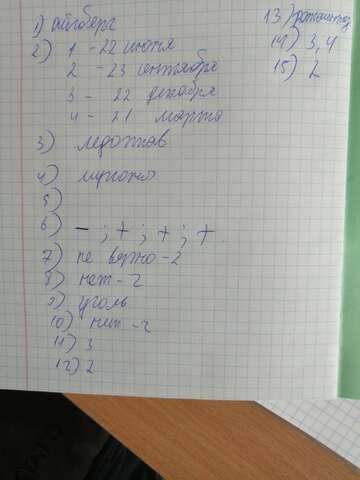 1) айсберг
2) 1 - 22 июня
2 - 23 сентября
3 - 22 декабря
4 - 21 марта
3) ледостав
4)
5)
6) - ; + ; + ; + .
7) не важно - 2
8) нет - 2
9) уголь
10) нет - 2
11) 3
12) 2
13)
14) 3, 4
15) 2